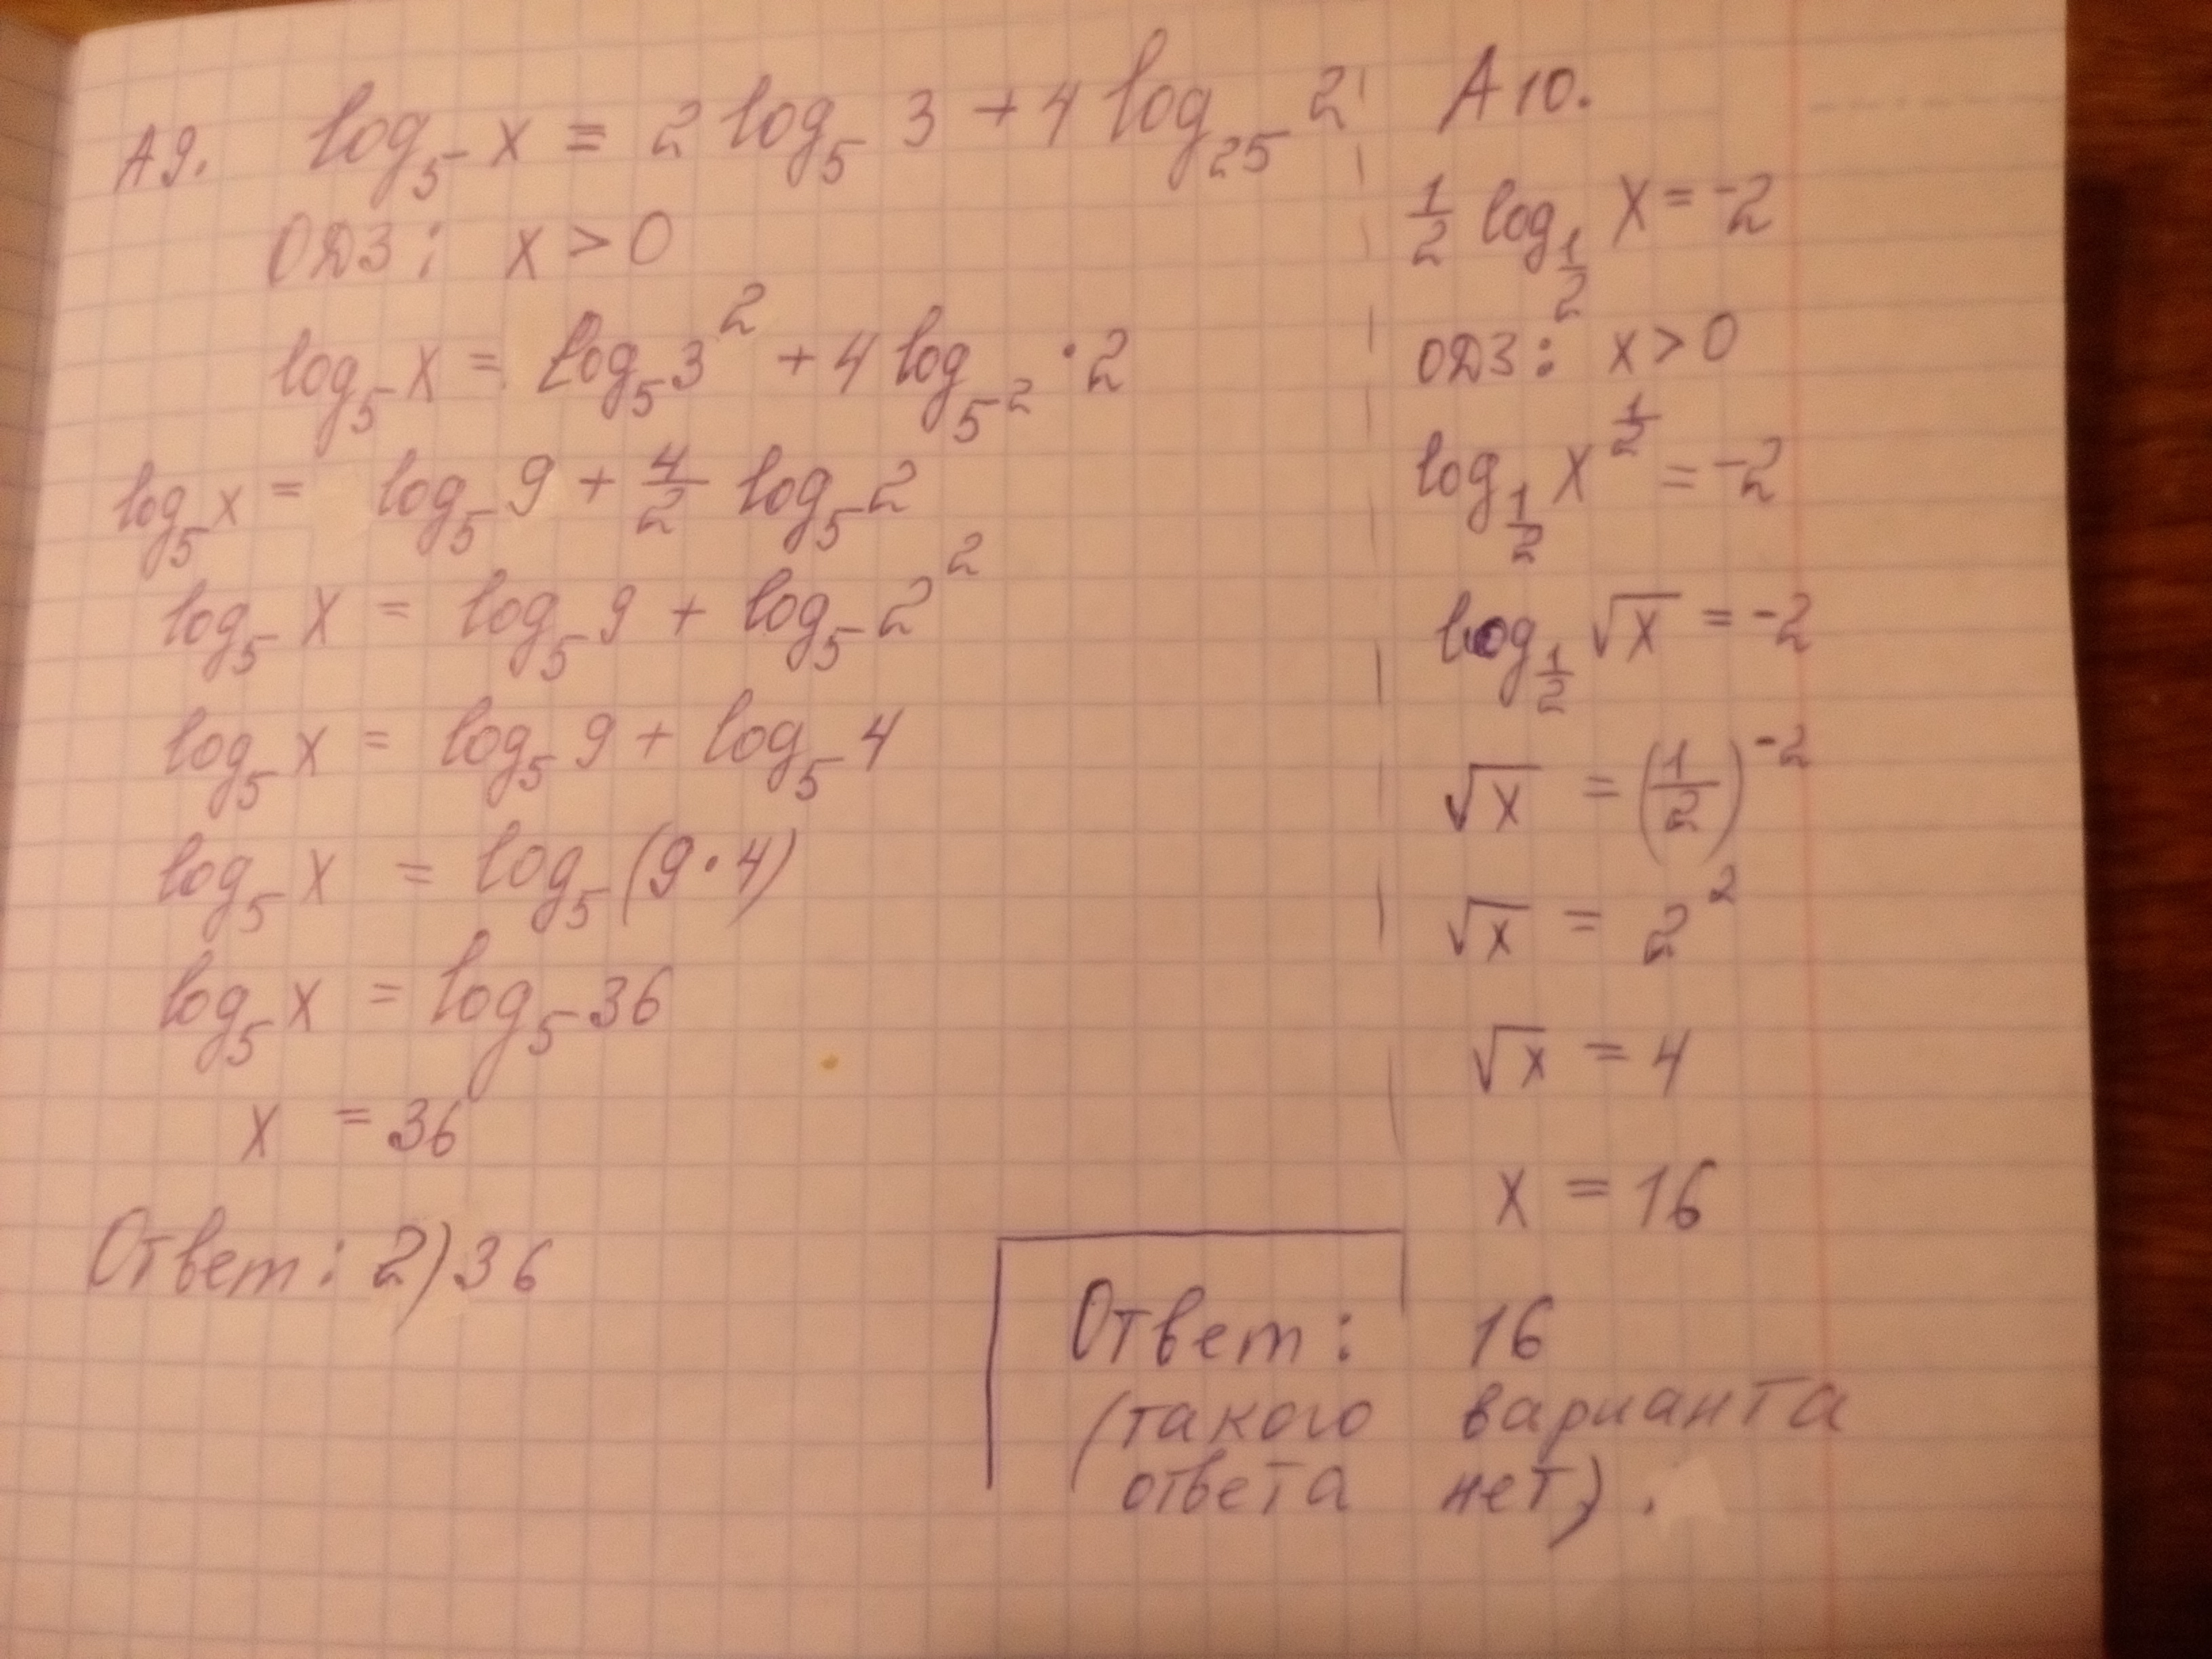 А9. log₅ x = 2 log₅ 3 + 4 log₂₅ 2
ОДЗ: x > 0
log₅ x = log₅ 3² + 4 log₅² · 2
log₅ x = log₅ 9 + 4/2 log₅ 2
log₅ x = log₅ 9 + log₅ 2²
log₅ x = log₅ 9 + log₅ 4
log₅ x = log₅ (9·4)
log₅ x = log₅ 36
x = 36
Ответ: 2) 36
А10.
1/2 log_{1/2} x = -2
ОДЗ: x > 0
log_{1/2} x^{1/2} = -2
log_{1/2} √x = -2
√x = (1/2)⁻²
√x = 2²
√x = 4
x = 16
Ответ: 16
(такого варианта
ответа нет).